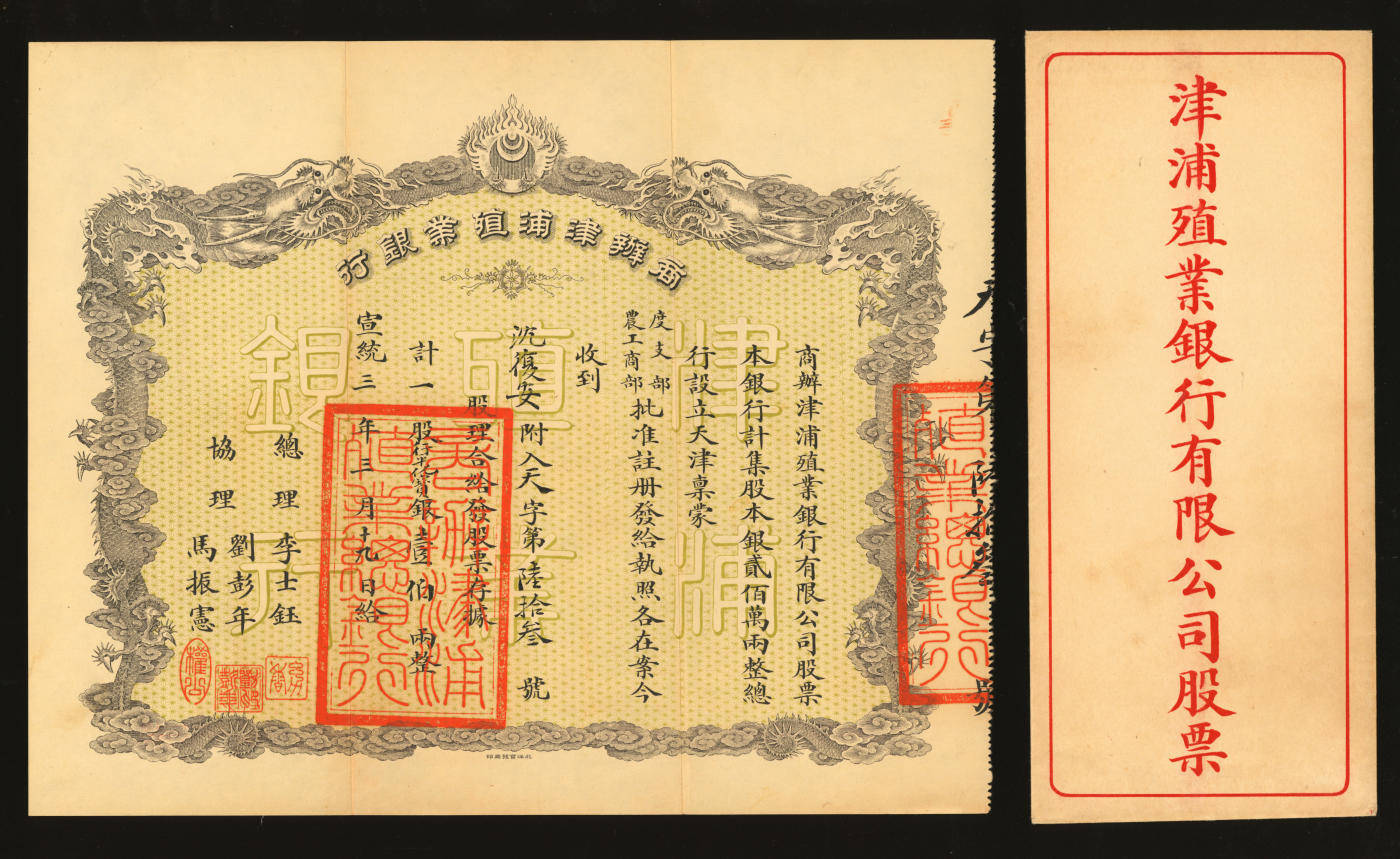 商辦津浦殖業銀行
商辦津浦殖業銀行有限公司股票
本銀行計集股本銀貳佰萬兩整總
行設立天津稟蒙
度支部
農工商部
批准註册發給執照各在案今
收到
沈復安附入天字第陸拾叁號
股理合給發股票存據
計一股行平化寶銀壹伯兩整
宣統三年三月十九日給
總理李士鈺
協理劉彭年
馬振憲
津浦
殖業
銀行
津浦殖業銀行有限公司股票